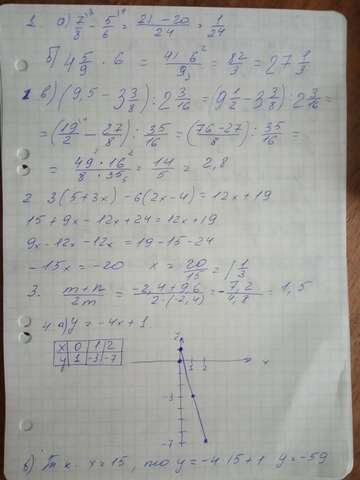 1. а) 7/8 - 5/6 = 21-20/24 = 1/24
б) 4 5/9 · 6 = 41·6/9 = 82/3 = 27 1/3
в) (9,5 - 3 3/8) : 2 3/16 = (9 1/2 - 3 3/8) : 2 3/16 =
= (19/2 - 27/8) : 35/16 = (76-27/8) : 35/16 =
= 49·16/8·35 = 14/5 = 2,8
2 3(5+3x) - 6(2x-4) = 12x+19
15+9x-12x+24=12x+19
9x-12x-12x=19-15-24
-15x=-20 x = 20/15 = 1 1/3
3. m+n/2m = -2,4+9,6/2·(-2,4) = -7,2/4,8 = 1,5
4. а) y = -4x+1
x 0 1 2
y 1 -3 -7
1 2 x
-3
-7
в) x=15, то y=-4·15+1 y=-59